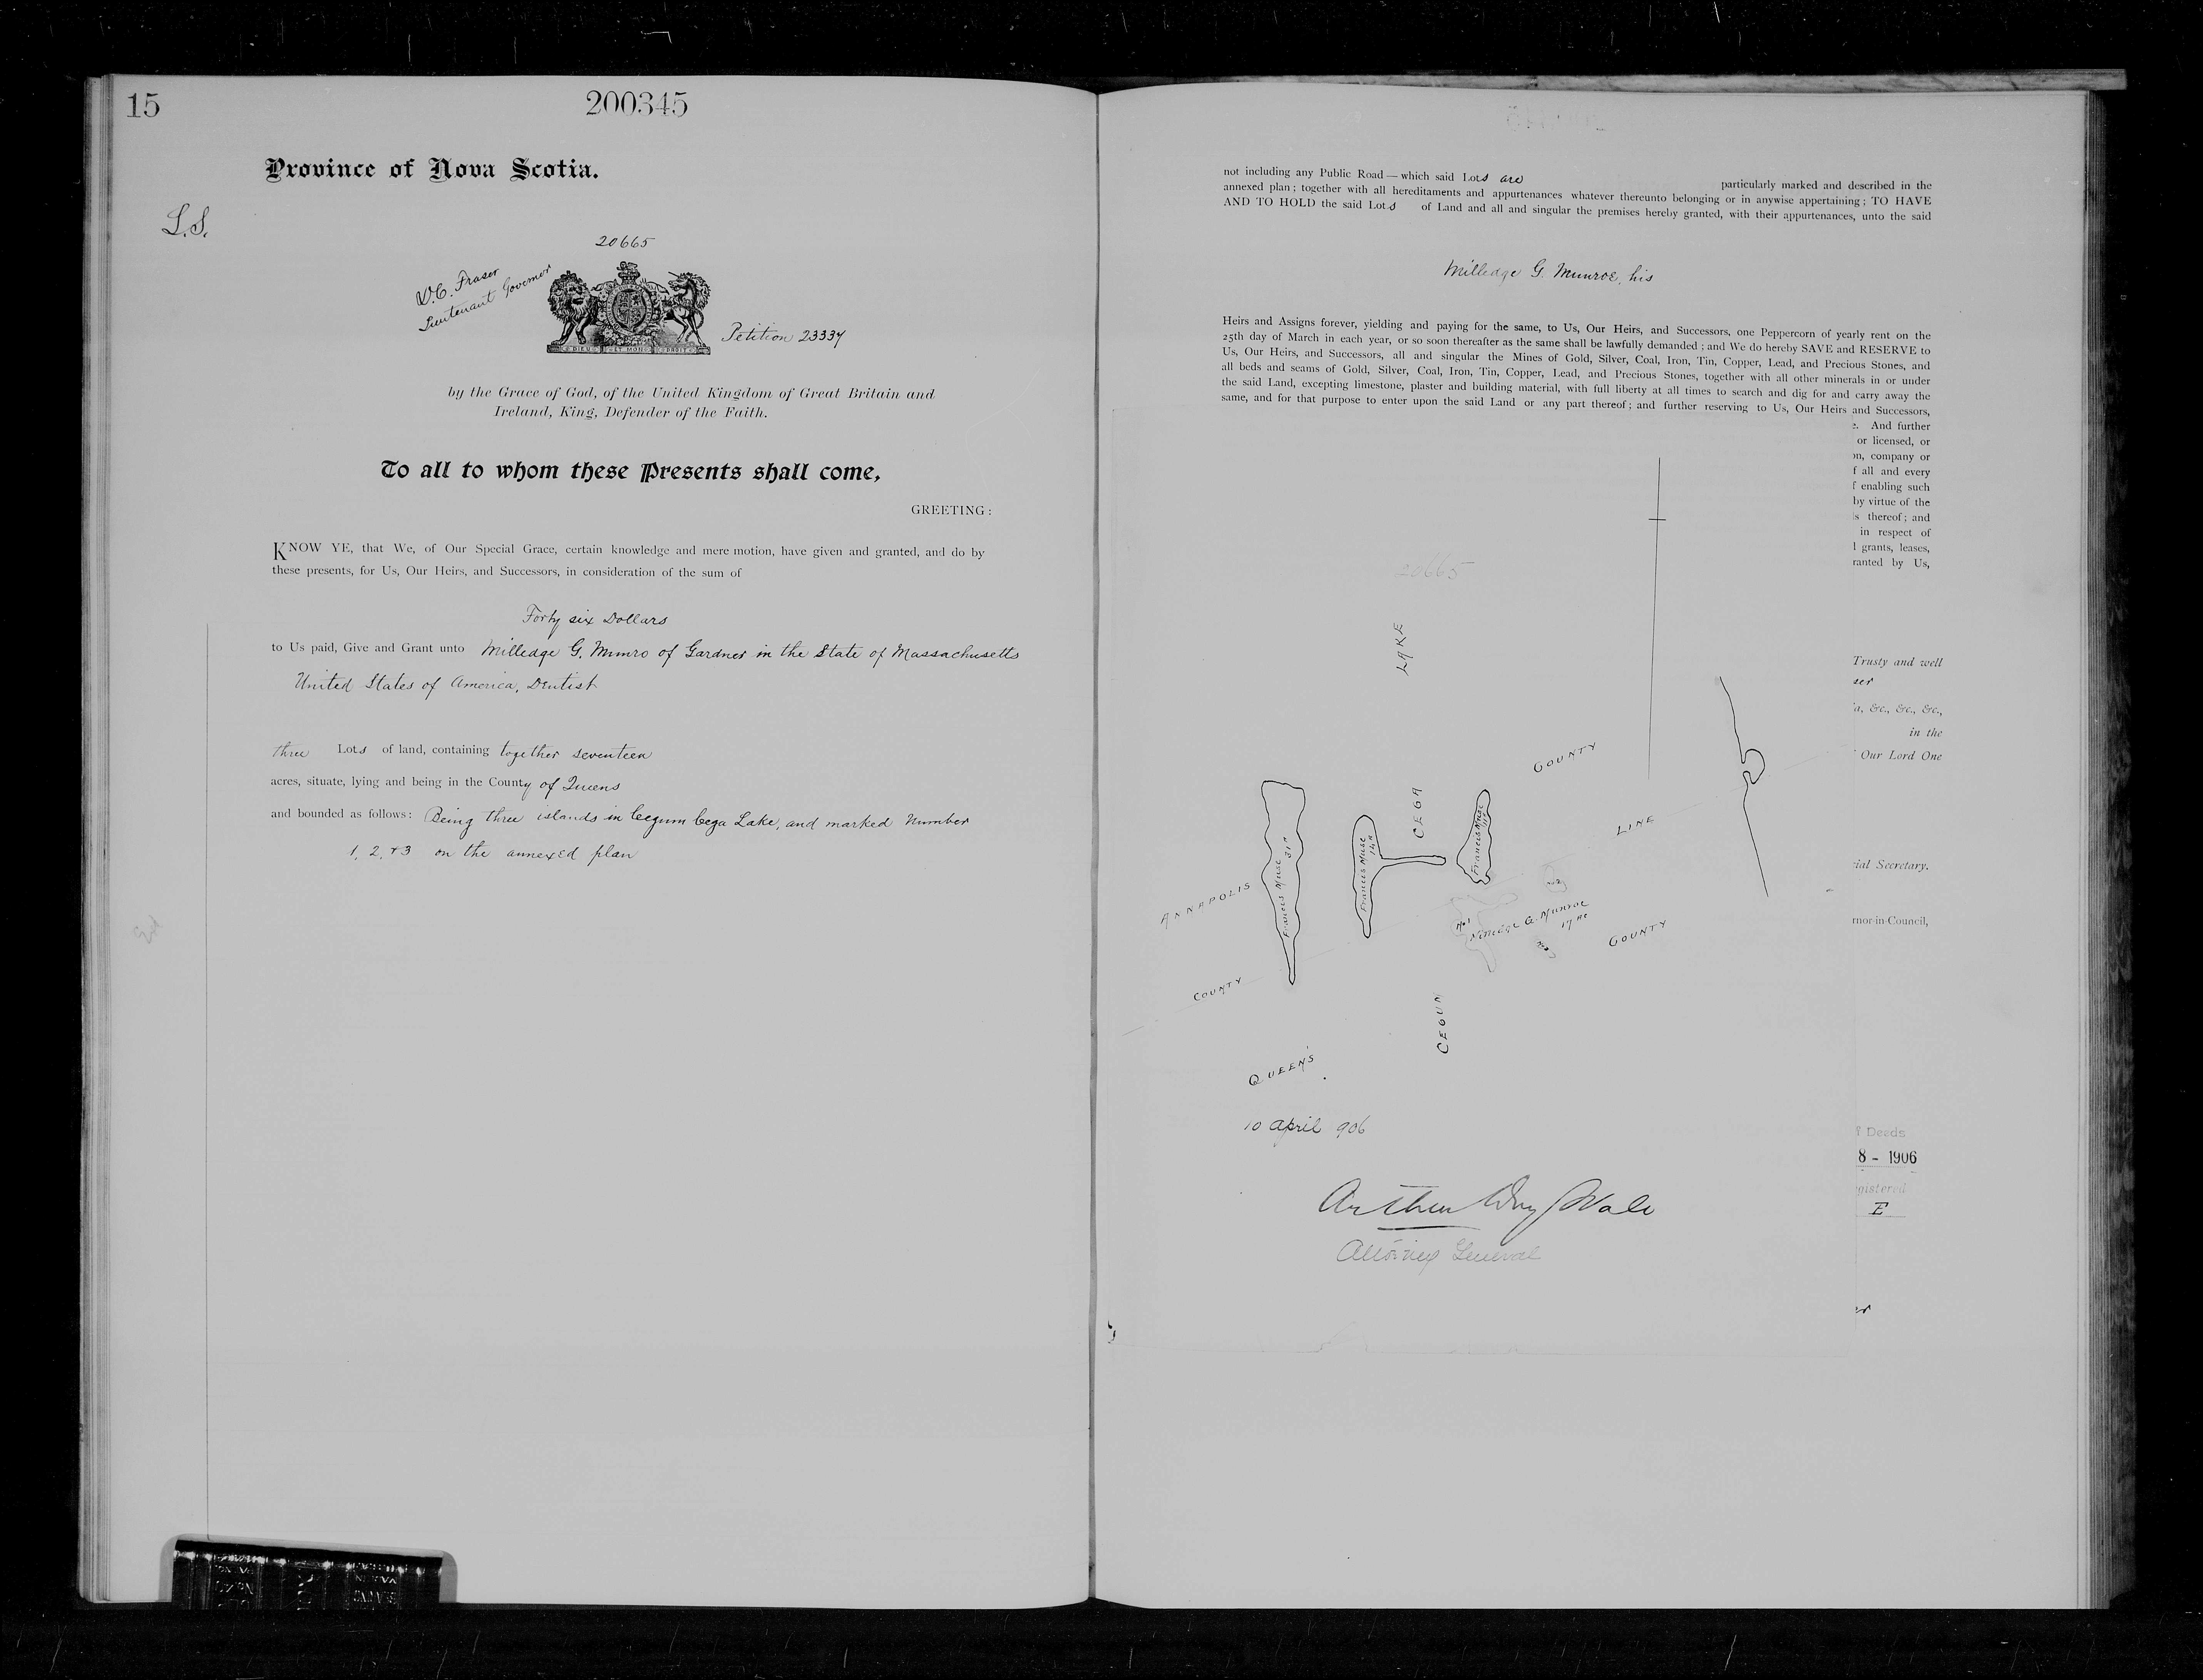 15
200345
Province of Nova Scotia.
L.S.
20665
D.C. Fraser
Lieutenant Governor
DIEU ET MON DROIT
Petition 23334
by the Grace of God, of the United Kingdom of Great Britain and
Ireland, King, Defender of the Faith.
To all to whom these Presents shall come,
GREETING:
KNOW YE, that We, of Our Special Grace, certain knowledge and mere motion, have given and granted, and do by
these presents, for Us, Our Heirs, and Successors, in consideration of the sum of
Forty six Dollars
to Us paid, Give and Grant unto Milledge G. Munro of Gardner in the State of Massachusetts
United States of America, Dentist
three Lots of land, containing together seventeen
acres, situate, lying and being in the County of Queens
and bounded as follows: Being three islands in Cegum Cega Lake, and marked Number
1, 2, + 3 on the annexed plan
not including any Public Road — which said Lots are particularly marked and described in the
annexed plan; together with all hereditaments and appurtenances whatever thereunto belonging or in anywise appertaining; TO HAVE
AND TO HOLD the said Lots of Land and all and singular the premises hereby granted, with their appurtenances, unto the said
Milledge G. Munroe, his
Heirs and Assigns forever, yielding and paying for the same, to Us, Our Heirs, and Successors, one Peppercorn of yearly rent on the
25th day of March in each year, or so soon thereafter as the same shall be lawfully demanded; and We do hereby SAVE and RESERVE to
Us, Our Heirs, and Successors, all and singular the Mines of Gold, Silver, Coal, Iron, Tin, Copper, Lead, and Precious Stones, and
all beds and seams of Gold, Silver, Coal, Iron, Tin, Copper, Lead, and Precious Stones, together with all other minerals in or under
the said Land, excepting limestone, plaster and building material, with full liberty at all times to search and dig for and carry away the
same, and for that purpose to enter upon the said Land or any part thereof; and further reserving to Us, Our Heirs and Successors,
e. And further
or licensed, or
on, company or
f all and every
f enabling such
by virtue of the
ls thereof; and
in respect of
l grants, leases,
ranted by Us,
20665
LAKE
Trusty and well
ser
a, &c., &c., &c.,
in the
Our Lord One
COUNTY
CEGA
LINE
Francis Muse
31 A
Francis Muse
14 A
Francis Muse
11 A
cial Secretary.
ANNAPOLIS
No 1
No 2
No 3
Milledge G. Munroe
17 Ac
rnor-in-Council,
COUNTY
COUNTY
CEGUM
QUEEN'S
10 April 906
f Deeds
8 - 1906
gistered
E
Attorney General
er